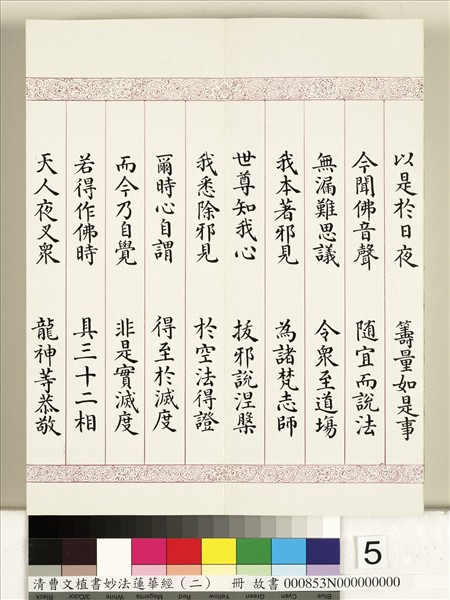 以是於日夜　籌量如是事
今聞佛音聲　隨宜而說法
無漏難思議　令眾至道場
我本著邪見　為諸梵志師
世尊知我心　拔邪說涅槃
我悉除邪見　於空法得證
爾時心自謂　得至於滅度
而今乃自覺　非是實滅度
若得作佛時　具三十二相
天人夜叉眾　龍神等恭敬
5
Blue Cyan Green Yellow Red Magenta White 3/Color Black
清曹文植書妙法蓮華經（二）　冊 故書 000853N000000000